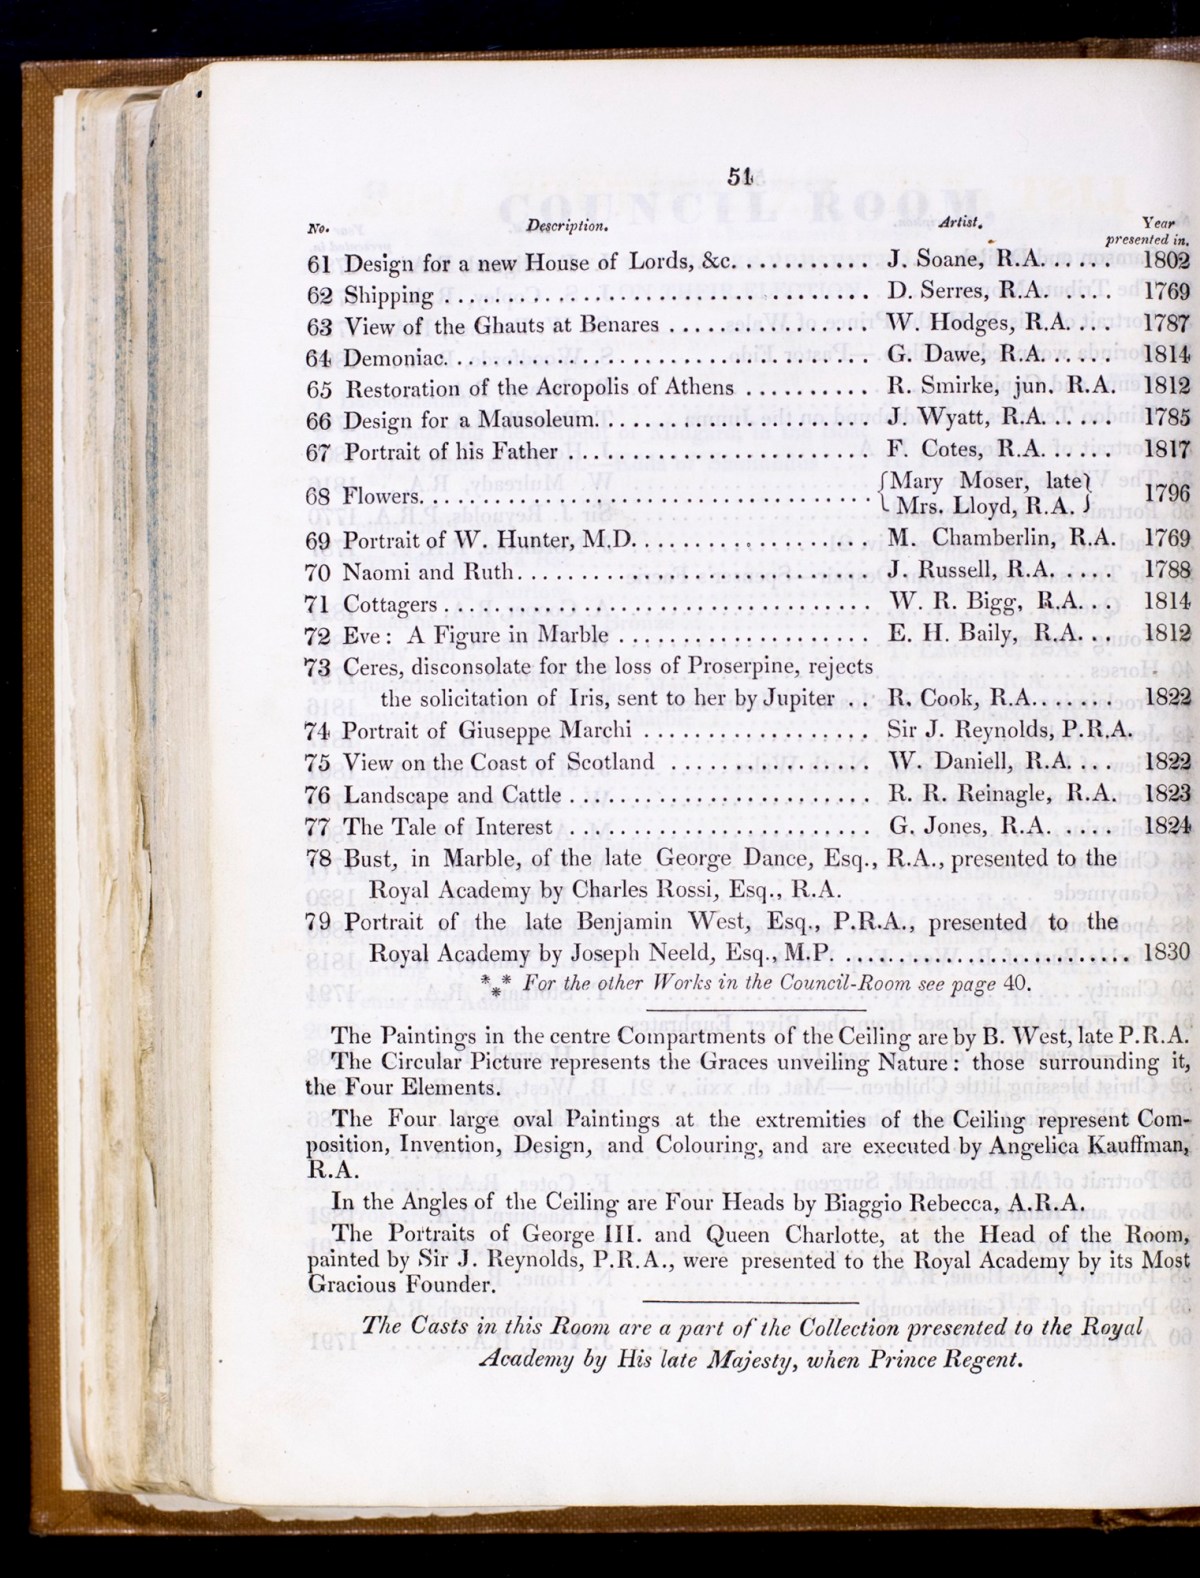 51
No. Description. Artist. Year
presented in.
61 Design for a new House of Lords, &c. J. Soane, R.A. 1802
62 Shipping D. Serres, R.A. 1769
63 View of the Ghauts at Benares W. Hodges, R.A. 1787
64 Demoniac. G. Dawe, R.A. 1814
65 Restoration of the Acropolis of Athens R. Smirke, jun. R.A. 1812
66 Design for a Mausoleum. J. Wyatt, R.A. 1785
67 Portrait of his Father F. Cotes, R.A. 1817
68 Flowers. {Mary Moser, late
Mrs. Lloyd, R.A.} 1796
69 Portrait of W. Hunter, M.D. M. Chamberlin, R.A. 1769
70 Naomi and Ruth. J. Russell, R.A. 1788
71 Cottagers W. R. Bigg, R.A. 1814
72 Eve: A Figure in Marble E. H. Baily, R.A. 1812
73 Ceres, disconsolate for the loss of Proserpine, rejects
the solicitation of Iris, sent to her by Jupiter R. Cook, R.A. 1822
74 Portrait of Giuseppe Marchi Sir J. Reynolds, P.R.A.
75 View on the Coast of Scotland W. Daniell, R.A. 1822
76 Landscape and Cattle R. R. Reinagle, R.A. 1823
77 The Tale of Interest G. Jones, R.A. 1824
78 Bust, in Marble, of the late George Dance, Esq., R.A., presented to the
Royal Academy by Charles Rossi, Esq., R.A.
79 Portrait of the late Benjamin West, Esq., P.R.A., presented to the
Royal Academy by Joseph Neeld, Esq., M.P. 1830
*** For the other Works in the Council-Room see page 40.
The Paintings in the centre Compartments of the Ceiling are by B. West, late P.R.A.
The Circular Picture represents the Graces unveiling Nature: those surrounding it,
the Four Elements.
The Four large oval Paintings at the extremities of the Ceiling represent Com-
position, Invention, Design, and Colouring, and are executed by Angelica Kauffman,
R.A.
In the Angles of the Ceiling are Four Heads by Biaggio Rebecca, A.R.A.
The Portraits of George III. and Queen Charlotte, at the Head of the Room,
painted by Sir J. Reynolds, P.R.A., were presented to the Royal Academy by its Most
Gracious Founder.
The Casts in this Room are a part of the Collection presented to the Royal
Academy by His late Majesty, when Prince Regent.